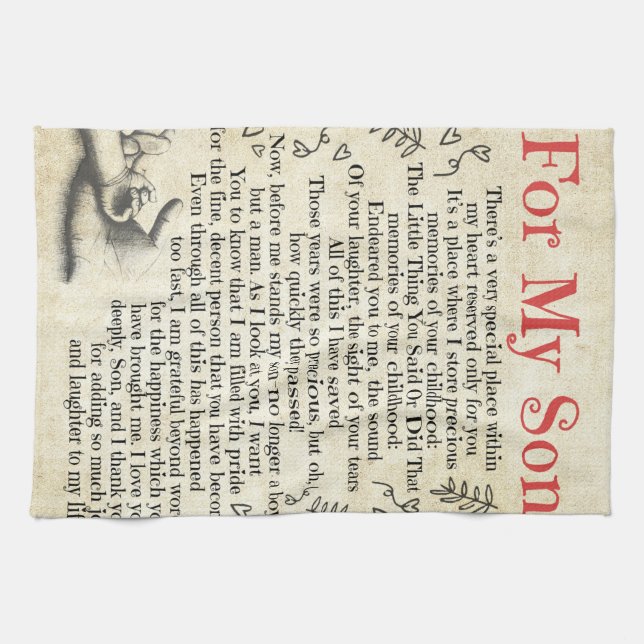 For My Son
There's a very special place within
my heart reserved only for you
It's a place where I store precious
memories of your childhood:
The Little Thing You Said Or Did That
memories of your childhood:
Endeared you to me, the sound
Of your laughter, the sight of your tears
All of this I have saved
Those years were so precious, but oh,
how quickly they passed!
Now, before me stands my son no longer a boy
but a man. As I look at you, I want
You to know that I am filled with pride
for the fine, decent person that you have becom
Even through all of this has happened
too fast, I am grateful beyond word
for the happiness which yo
have brought me. I love yo
deeply, Son, and I thank yo
for adding so much jo
and laughter to my lif